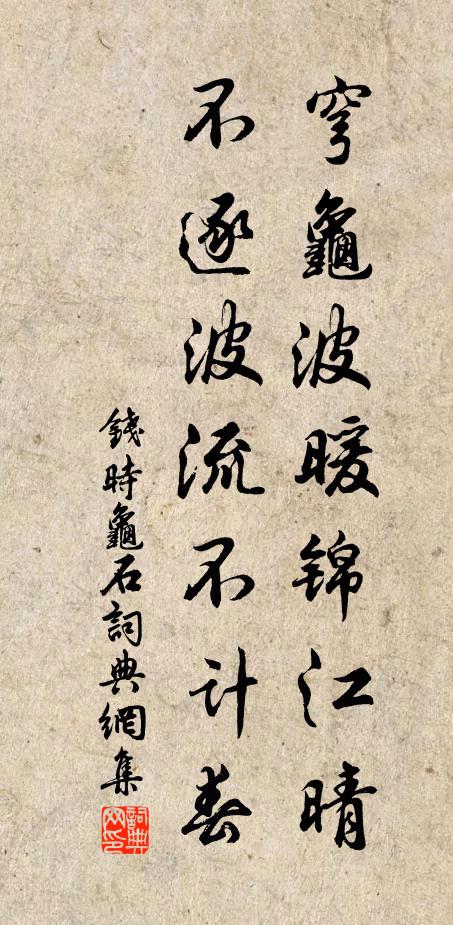 穹龜波暖錦江晴
不逐波流不計春
錢時龜石詞典網集
詞典网印